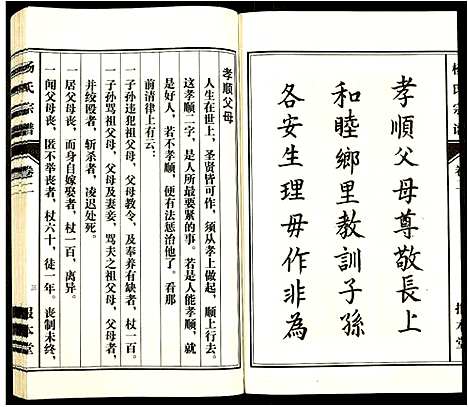 孝順父母尊敬長上
和睦鄉里教訓子孫
各安生理毋作非為
孝顺父母
人生在世上，圣贤皆可作，须从孝上做起，顺上行去。
这孝顺二字，是人所最要紧的事。若是人能孝顺，就
是好人，若不孝顺，便有法惩治他了。看那
前清律上有云：
一子孙违犯祖父母、父母教令，及奉养有缺者，杖一百。
一子孙骂祖父母、父母及妻妾，骂夫之祖父母、父母者，
并绞殴者，斩杀者，凌迟处死。
一居父母丧，而身自嫁娶者，杖一百，离异。
一闻父母丧，匿不举丧者，杖六十，徒一年。丧制未终，
杨氏宗谱
卷二
报本堂